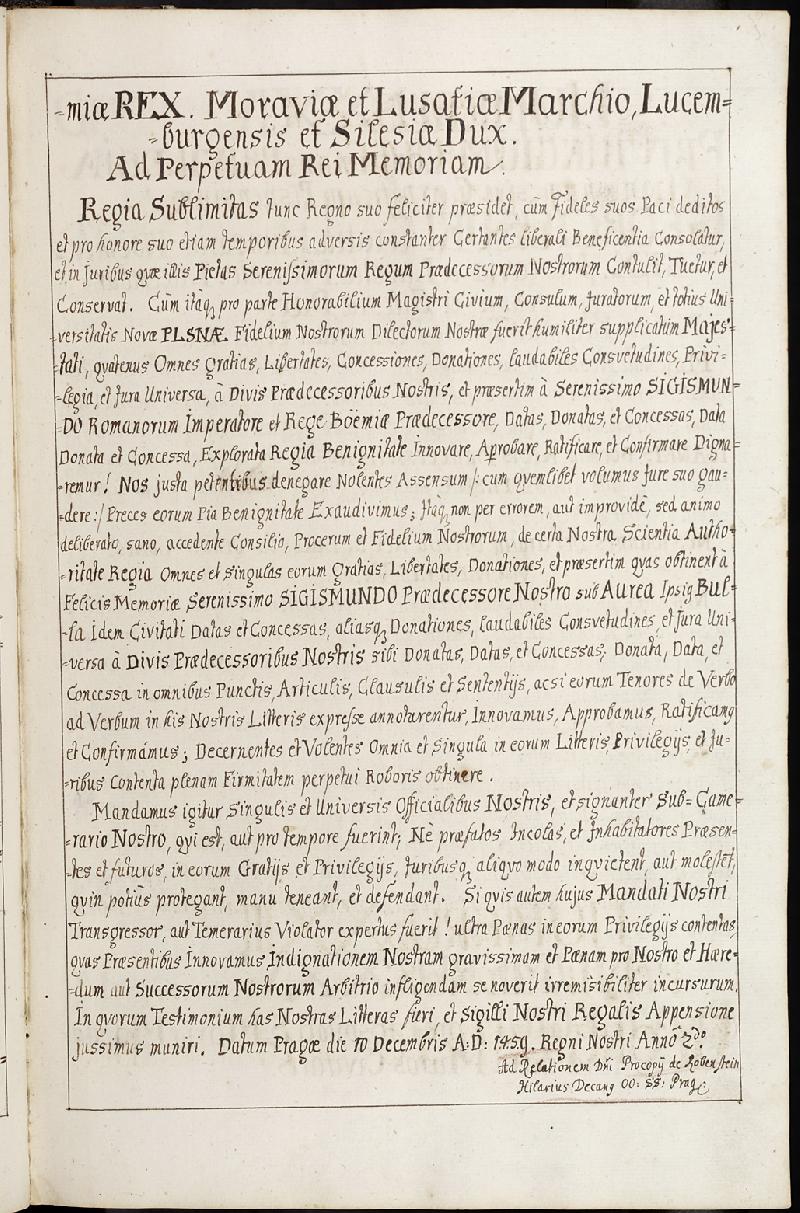 -miæ REX. Moraviæ et Lusatiæ Marchio, Lucem=
-burgensis et Silesiæ Dux.
Ad Perpetuam Rei Memoriam.
Regia Sublimitas tunc Regno suo feliciter præsidet, cùm Fideles suos Paci deditos
et pro honore suo etiam temporibus adversis constanter Certantes liberali Beneficentia Consolatur,
et in Juribus quæ illis Pietas Serenissimorum Regum Prædecessorum Nostrorum Contulit, Tuetur, et
Conservat. Cùm itaq, pro parte Honorabilium Magistri Civium, Consulum, Juratorum, et totius Uni-
-versitatis Novæ PLSNÆ. Fidelium Nostrorum Dilectorum Nostræ fuerit humiliter supplicatum Majes-
-tati, qvatenus Omnes Gratias, Libertates, Concessiones, Donationes, laudabiles Consvetudines, Privi-
-legia, et Jura Universa, à Divis Prædecessoribus Nostris, et præsertim à Serenissimo SIGISMUN-
DO Romanorum Imperatore et Rege Böemiæ Prædecessore, Datas, Donatas, et Concessas, Data
Donata et Concessa, Explorata Regia Benignitate Innovare, Aprobare, Ratificare, et Confirmare Digna-
remur! Nos justa petentibus denegare Nolentes Assensum /: cum qvemlibet volumus Jure suo gau-
dere :/ Preces eorum Pia Benignitate Exaudivimus; Itaq, non per errorem, aut improvidè, sed animo
deliberato, sano, accedente Consilio, Procerum et Fidelium Nostrorum, de certa Nostra Scientia Autho-
-ritate Regia Omnes et Singulas eorum Gratias, Libertates, Donationes, et præsertim qvas obtinent à
Felicis Memoriæ Serenissimo SIGISMUNDO Prædecessore Nostro sub Aurea Ipsiq Bul-
-la Idem Civitati Datas et Concessas, aliasq, Donationes, laudabiles Consvetudines, et Jura Uni-
-versa à Divis Prædecessoribus Nostris sibi Donatas, Datas, et Concessas; Donata, Data, et
Concessa in omnibus Punctis, Articulis, Clausulis et Sententijs, ac si eorum Tenores de Verbo
ad Verbum in his Nostris Litteris expresse annotarentur, Innovamus, Approbamus, Ratificamq
et Confirmámus; Decernentes et Volentes Omnia et Singula in eorum Litteris, Privilegijs, et Ju-
-ribus Contenta plenam Firmitatem perpetui Roboris obtinere.
Mandamus igitur Singulis et Universis Officialibus Nostris, et signanter Sub=Came-
-rario Nostro, qvi est, aut pro tempore fuerint; Nè præfatos Incolas, et Inhabitatores Præsen-
-tes et futuros, in eorum Gratijs et Privilegijs, Juribusq, aliqvo modo inqvietent, aut molestet,
qvin potiùs protegant, manu teneant, et defendant. Si qvis autem hujus Mandati Nostri
Transgressor, aut Temerarius Violator expertus fuerit! ultra Pænas in eorum Privilegijs contentas,
qvas Præsentibus Innovamus, Indignationem Nostram gravissimam et Pænam pro Nostro et Hære-
-dum aut Successorum Nostrorum Arbitrio infligendam se noverit irremisibiliter incursurum.
In qvorum Testimonium has Nostras Litteras fieri, et Sigilli Nostri Regalis Appensione
jussimus muniri. Datum Pragæ die 10 Decembris A: D: 1459. Regni Nostri Annô 2do
Ad Relationem Dñi Procopij de Rabenstein
Hilarius Decanq OO: SS: Prag: